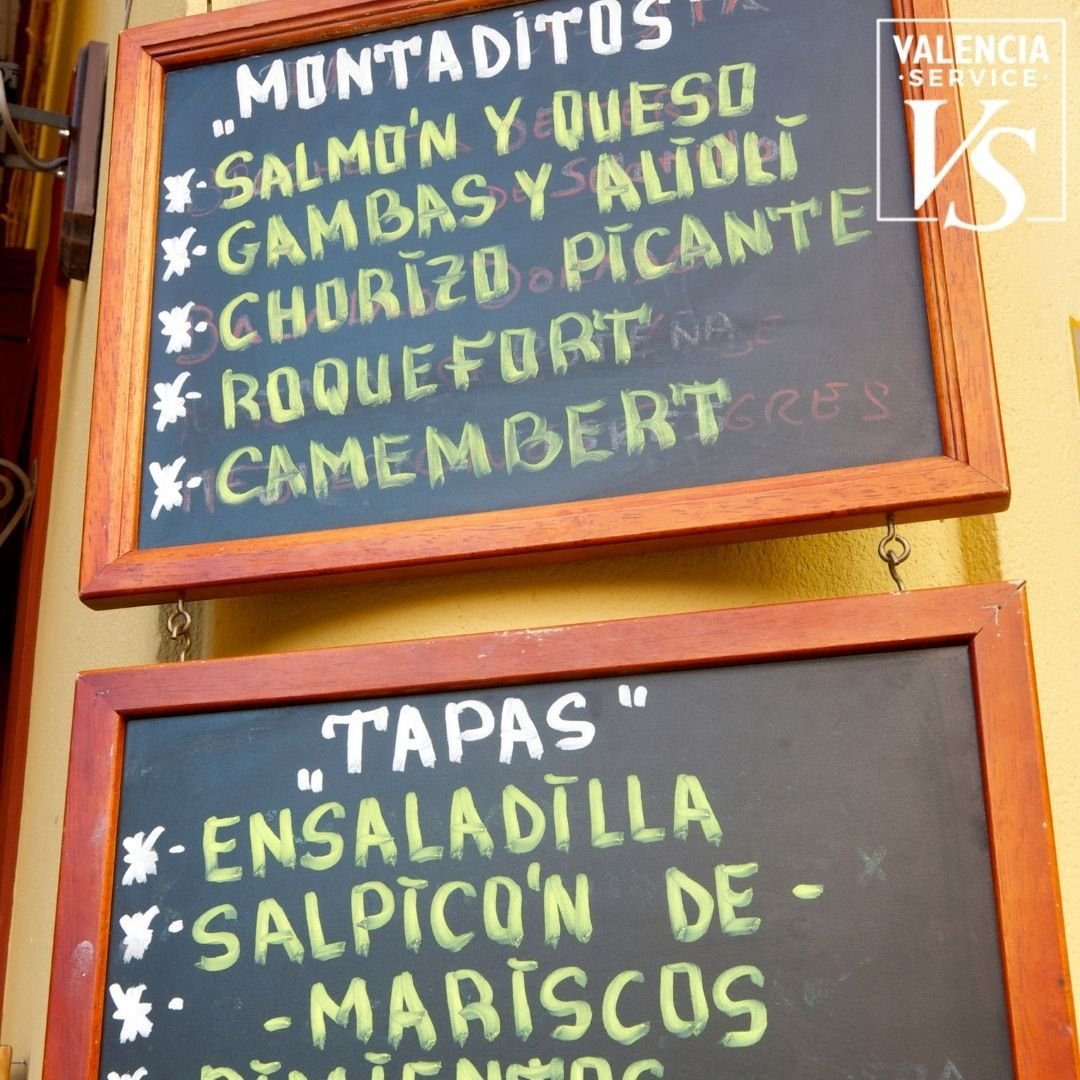 VALENCIA
·SERVICE·
VS
„MONTADITOS"
*- SALMÓN Y QUESO
*- GAMBAS Y ALIOLI
*- CHORIZO PICANTE
*- ROQUEFORT
*- CAMEMBERT
„TAPAS"
*- ENSALADILLA
*- SALPICÓN DE -
*- - MARISCOS
* PIMIENTOS